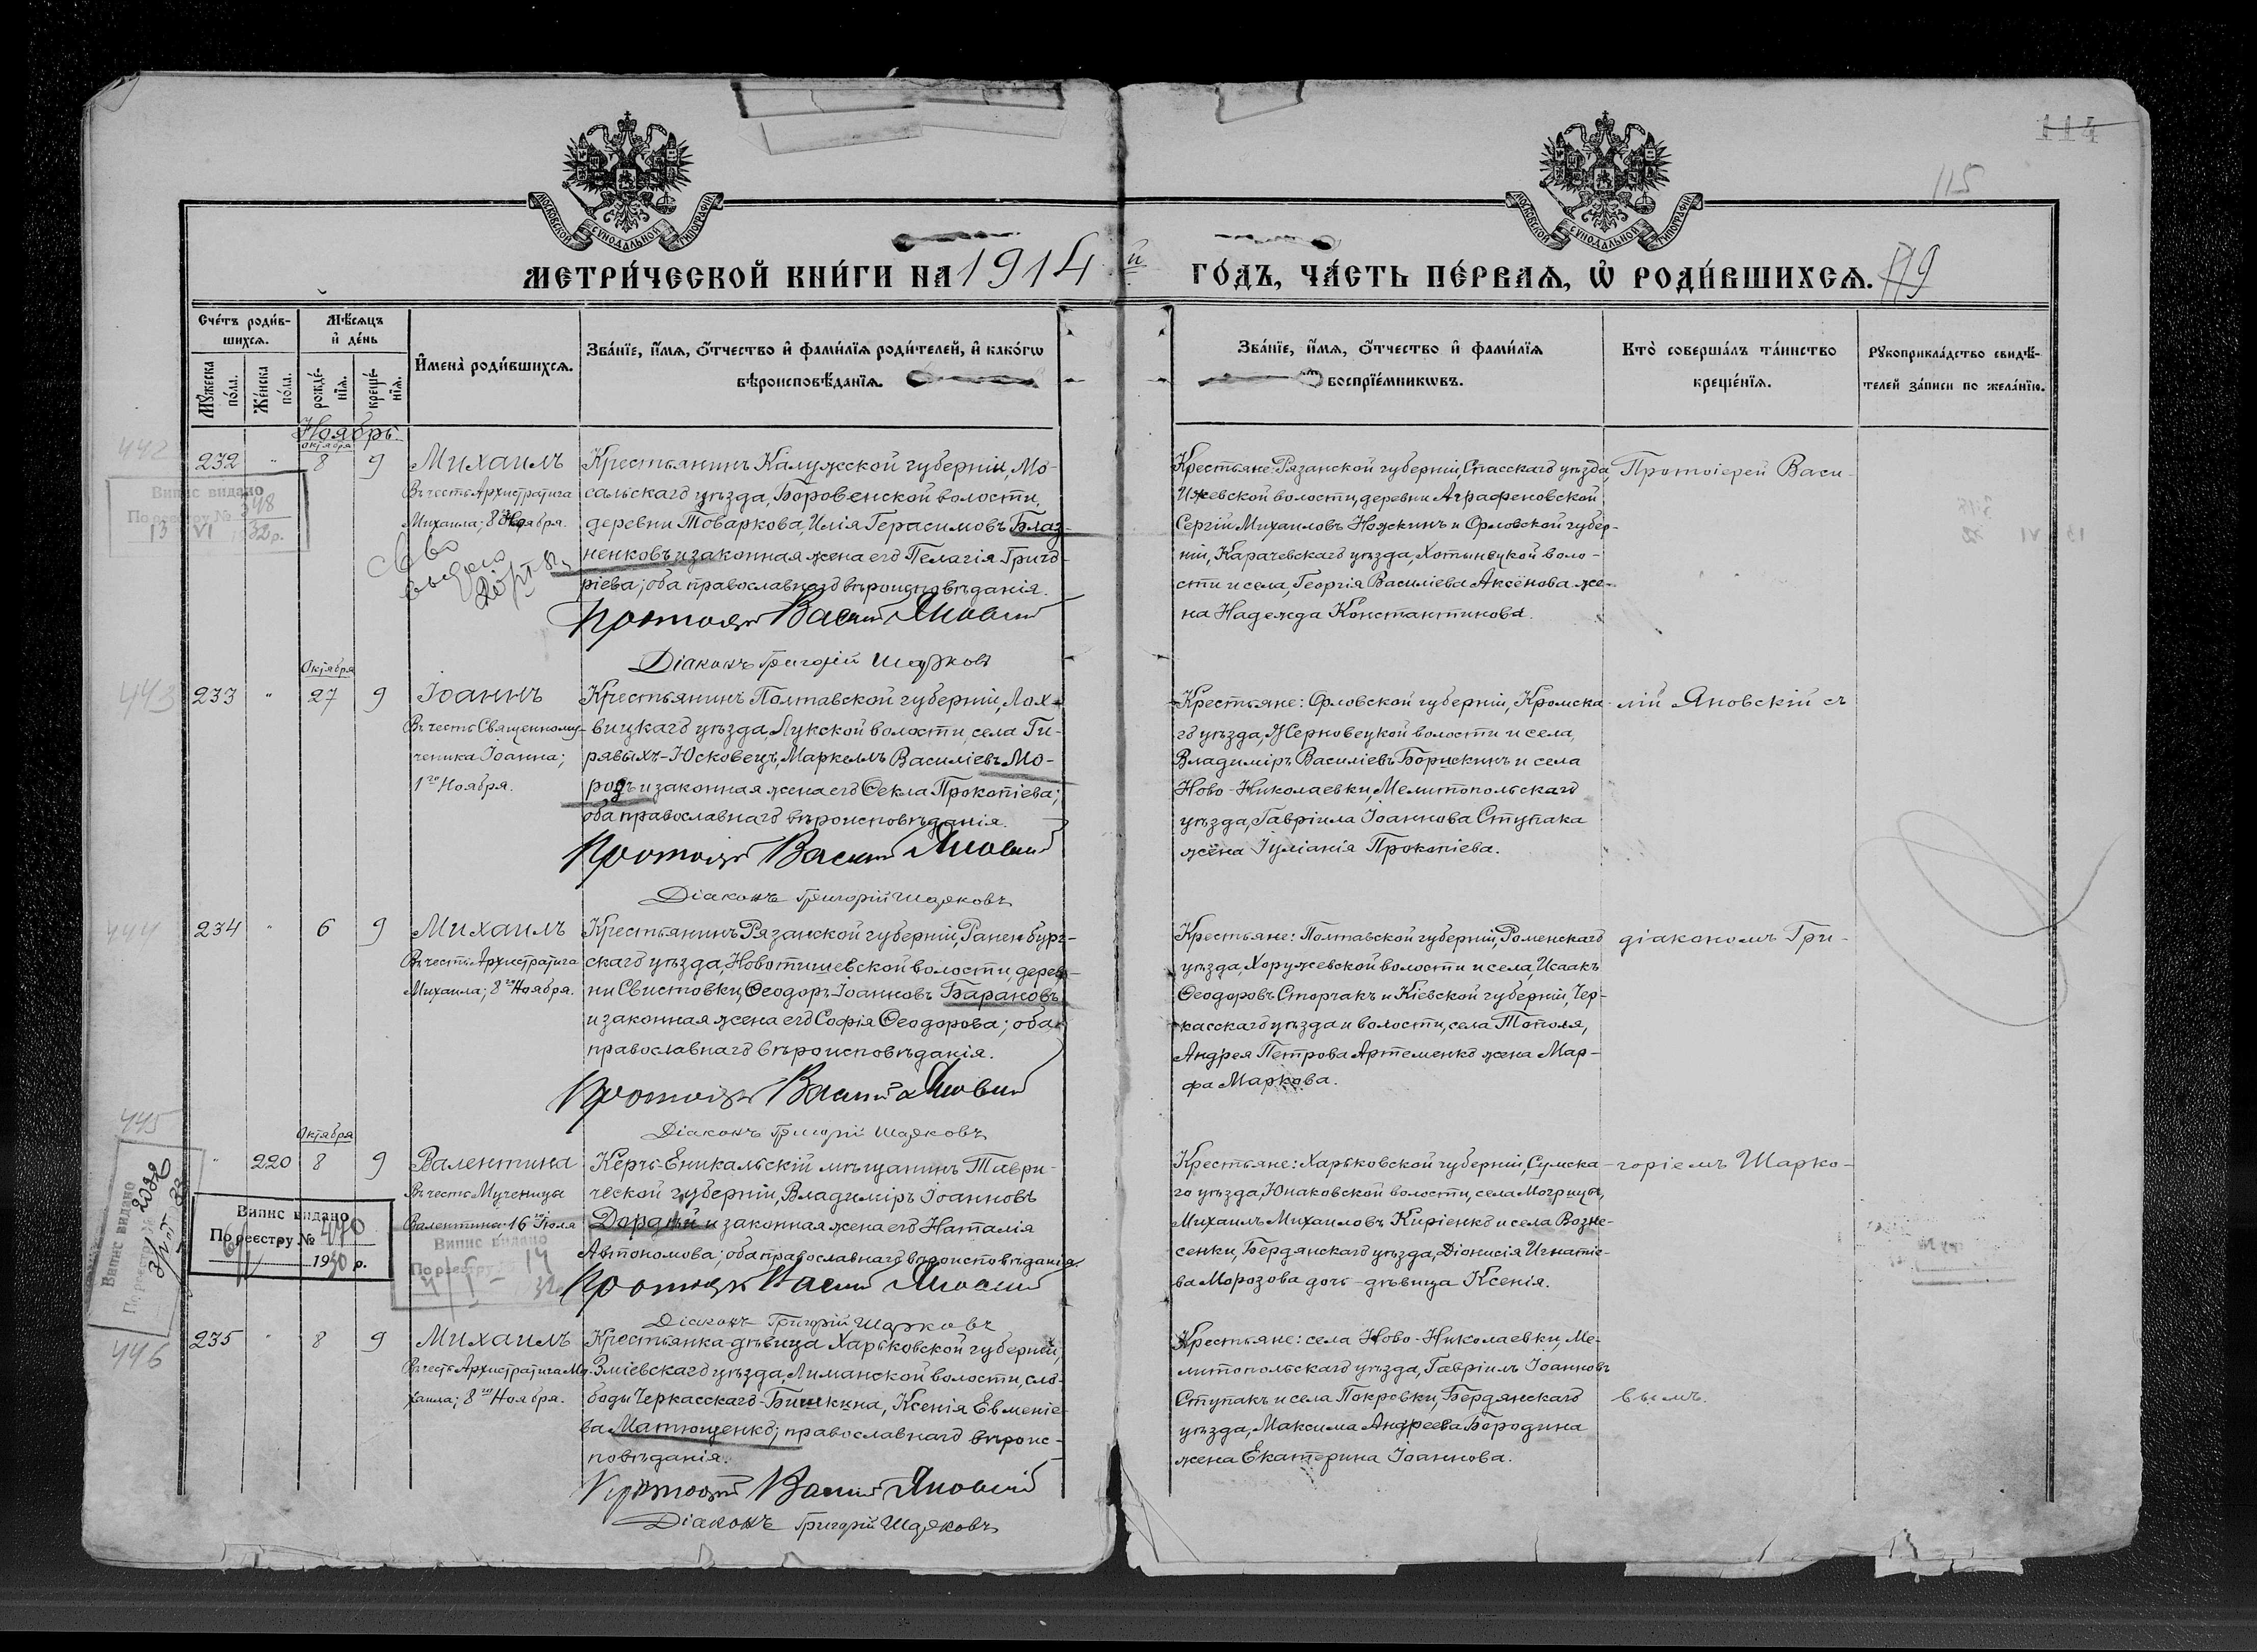 114
115
МОСКОВСКОЙ СѴНОДАЛЬНОЙ ТИПОГРАФІИ
МОСКОВСКОЙ СѴНОДАЛЬНОЙ ТИПОГРАФІИ
МЕТРИ́ЧЕСКОЙ КНИ́ГИ НА 1914 й ГО́ДЪ, ЧА́СТЬ ПЕ́РВАѦ, Ѡ҆ РОДИ́ВШИХСѦ. 119
Сче́тъ роди́в-
шихсѧ.
Мꙋ́жеска по́ла.
Же́нска по́ла.
Мѣ́сѧцъ
и҆ де́нь
рожде́-
нїѧ.
креще́-
нїѧ.
И҆мена̀ роди́вшихсѧ.
Зва́нїе, и҆́мѧ, ѻ҆́тчество и҆ фами́лїѧ роди́телей, и҆ како́гѡ
вѣроисповѣ́данїѧ.
Зва́нїе, и҆́мѧ, ѻ҆́тчество и҆ фами́лїѧ
воспрїе́мникѡвъ.
Кто̀ соверша́лъ та́инство
креще́нїѧ.
Рꙋкоприкла́дство свидѣ́-
телей за́писи по жела́нїю.
Ноябрь
442
октября
232 " 8 9 Михаилъ
Въ честь Архистратига
Михаила; 8го Ноября.
Крестьянинъ Калужской губерніи, Мо-
сальскаго уѣзда, Боровенской волости,
деревни Товаркова, Илія Герасимовъ Блаз-
ненковъ и законная жена его Пелагія Григо-
ріева; оба православнаго вѣроисповѣданія.
Протоіерей Василій Яновскій
Діаконъ Григорій Шарковъ
Крестьяне: Рязанской губерніи, Спасскаго уѣзда,
Ижевской волости, деревни Аграфеновской
Сергій Михаиловъ Ножкинъ и Орловской губер-
ніи, Карачевскаго уѣзда, Хотынецкой воло-
сти и села, Георгія Василіева Аксёнова же-
на Надежда Константинова.
Протоіерей Васи-
Випис видано
По реєстру № 348
13 VI 1932 р.
443
Октября
233 " 27 9 Іоаннъ
Въ честь Священному-
ченика Іоанна;
1го Ноября.
Крестьянинъ Полтавской губерніи, Лох-
вицкаго уѣзда, Лукской волости, села Ги-
рявыхъ-Юсковецъ, Маркеллъ Василіевъ Мо-
розъ и законная жена его Ѳекла Прокопіева;
оба православнаго вѣроисповѣданія.
Протоіерей Василій Яновскій
Діаконъ Григорій Шарковъ
Крестьяне: Орловской губерніи, Кромска-
го уѣзда, Жерновецкой волости и села,
Владиміръ Василіевъ Борискинъ и села
Ново-Николаевки, Мелитопольскаго
уѣзда, Гавріила Іоаннова Ступака
жена Іуліанія Прокопіева.
лій Яновскій съ
444
234 " 6 9 Михаилъ
Въ честь Архистратига
Михаила; 8го Ноября.
Крестьянинъ Рязанской губерніи, Раненбург-
скаго уѣзда, Новотишевской волости дерев-
ни Свистовки, Ѳеодоръ Іоанновъ Барановъ
и законная жена его Софія Ѳеодорова; оба
православнаго вѣроисповѣданія.
Протоіерей Василій Яновскій
Діаконъ Григорій Шарковъ
Крестьяне: Полтавской губерніи, Роменскаго
уѣзда, Хоружевской волости и села, Исаакъ
Ѳеодоровъ Сторчакъ и Кіевской губерніи, Чер-
касскаго уѣзда и волости, села Тополя,
Андрея Петрова Артеменко жена Мар-
фа Маркова.
діакономъ Гри-
445
Октября
" 220 8 9 Валентина
Въ честь Мученицы
Валентины 16го Іюля
Керчь-Еникальскій мѣщанинъ Таври-
ческой губерніи, Владиміръ Іоанновъ
и законная жена его Наталія
Автономова; оба православнаго вѣроисповѣданія.
Протоіерей Василій Яновскій
Діаконъ Григорій Шарковъ
Крестьяне: Харьковской губерніи, Сумска-
го уѣзда, Юнаковской волости, села Могрицы,
Михаилъ Михаиловъ Киріенко и села Возне-
сенки, Бердянскаго уѣзда, Діонисія Игнатіе-
ва Морозова дочь-дѣвица Ксенія.
горіемъ Шарко-
Випис видано
По реєстру
Випис видано
По реєстру № 440
1930 р.
Випис видано
По реєстру 14
446
235 " 8 9 Михаилъ
Въ честь Архистратига Ми-
хаила; 8го Ноября.
Крестьянка-дѣвица Харьковской губерніи,
Зміевскаго уѣзда, Лиманской волости, сло-
боды Черкасскаго-Бишкина, Ксенія Евменіе-
ва Матющенко; православнаго вѣроис-
повѣданія.
Протоіерей Василій Яновскій
Діаконъ Григорій Шарковъ
Крестьяне: села Ново-Николаевки, Ме-
литопольскаго уѣзда, Гавріилъ Іоанновъ
Ступакъ и села Покровки, Бердянскаго
уѣзда, Максима Андреева Бородина
жена Екатерина Іоаннова.
вымъ.